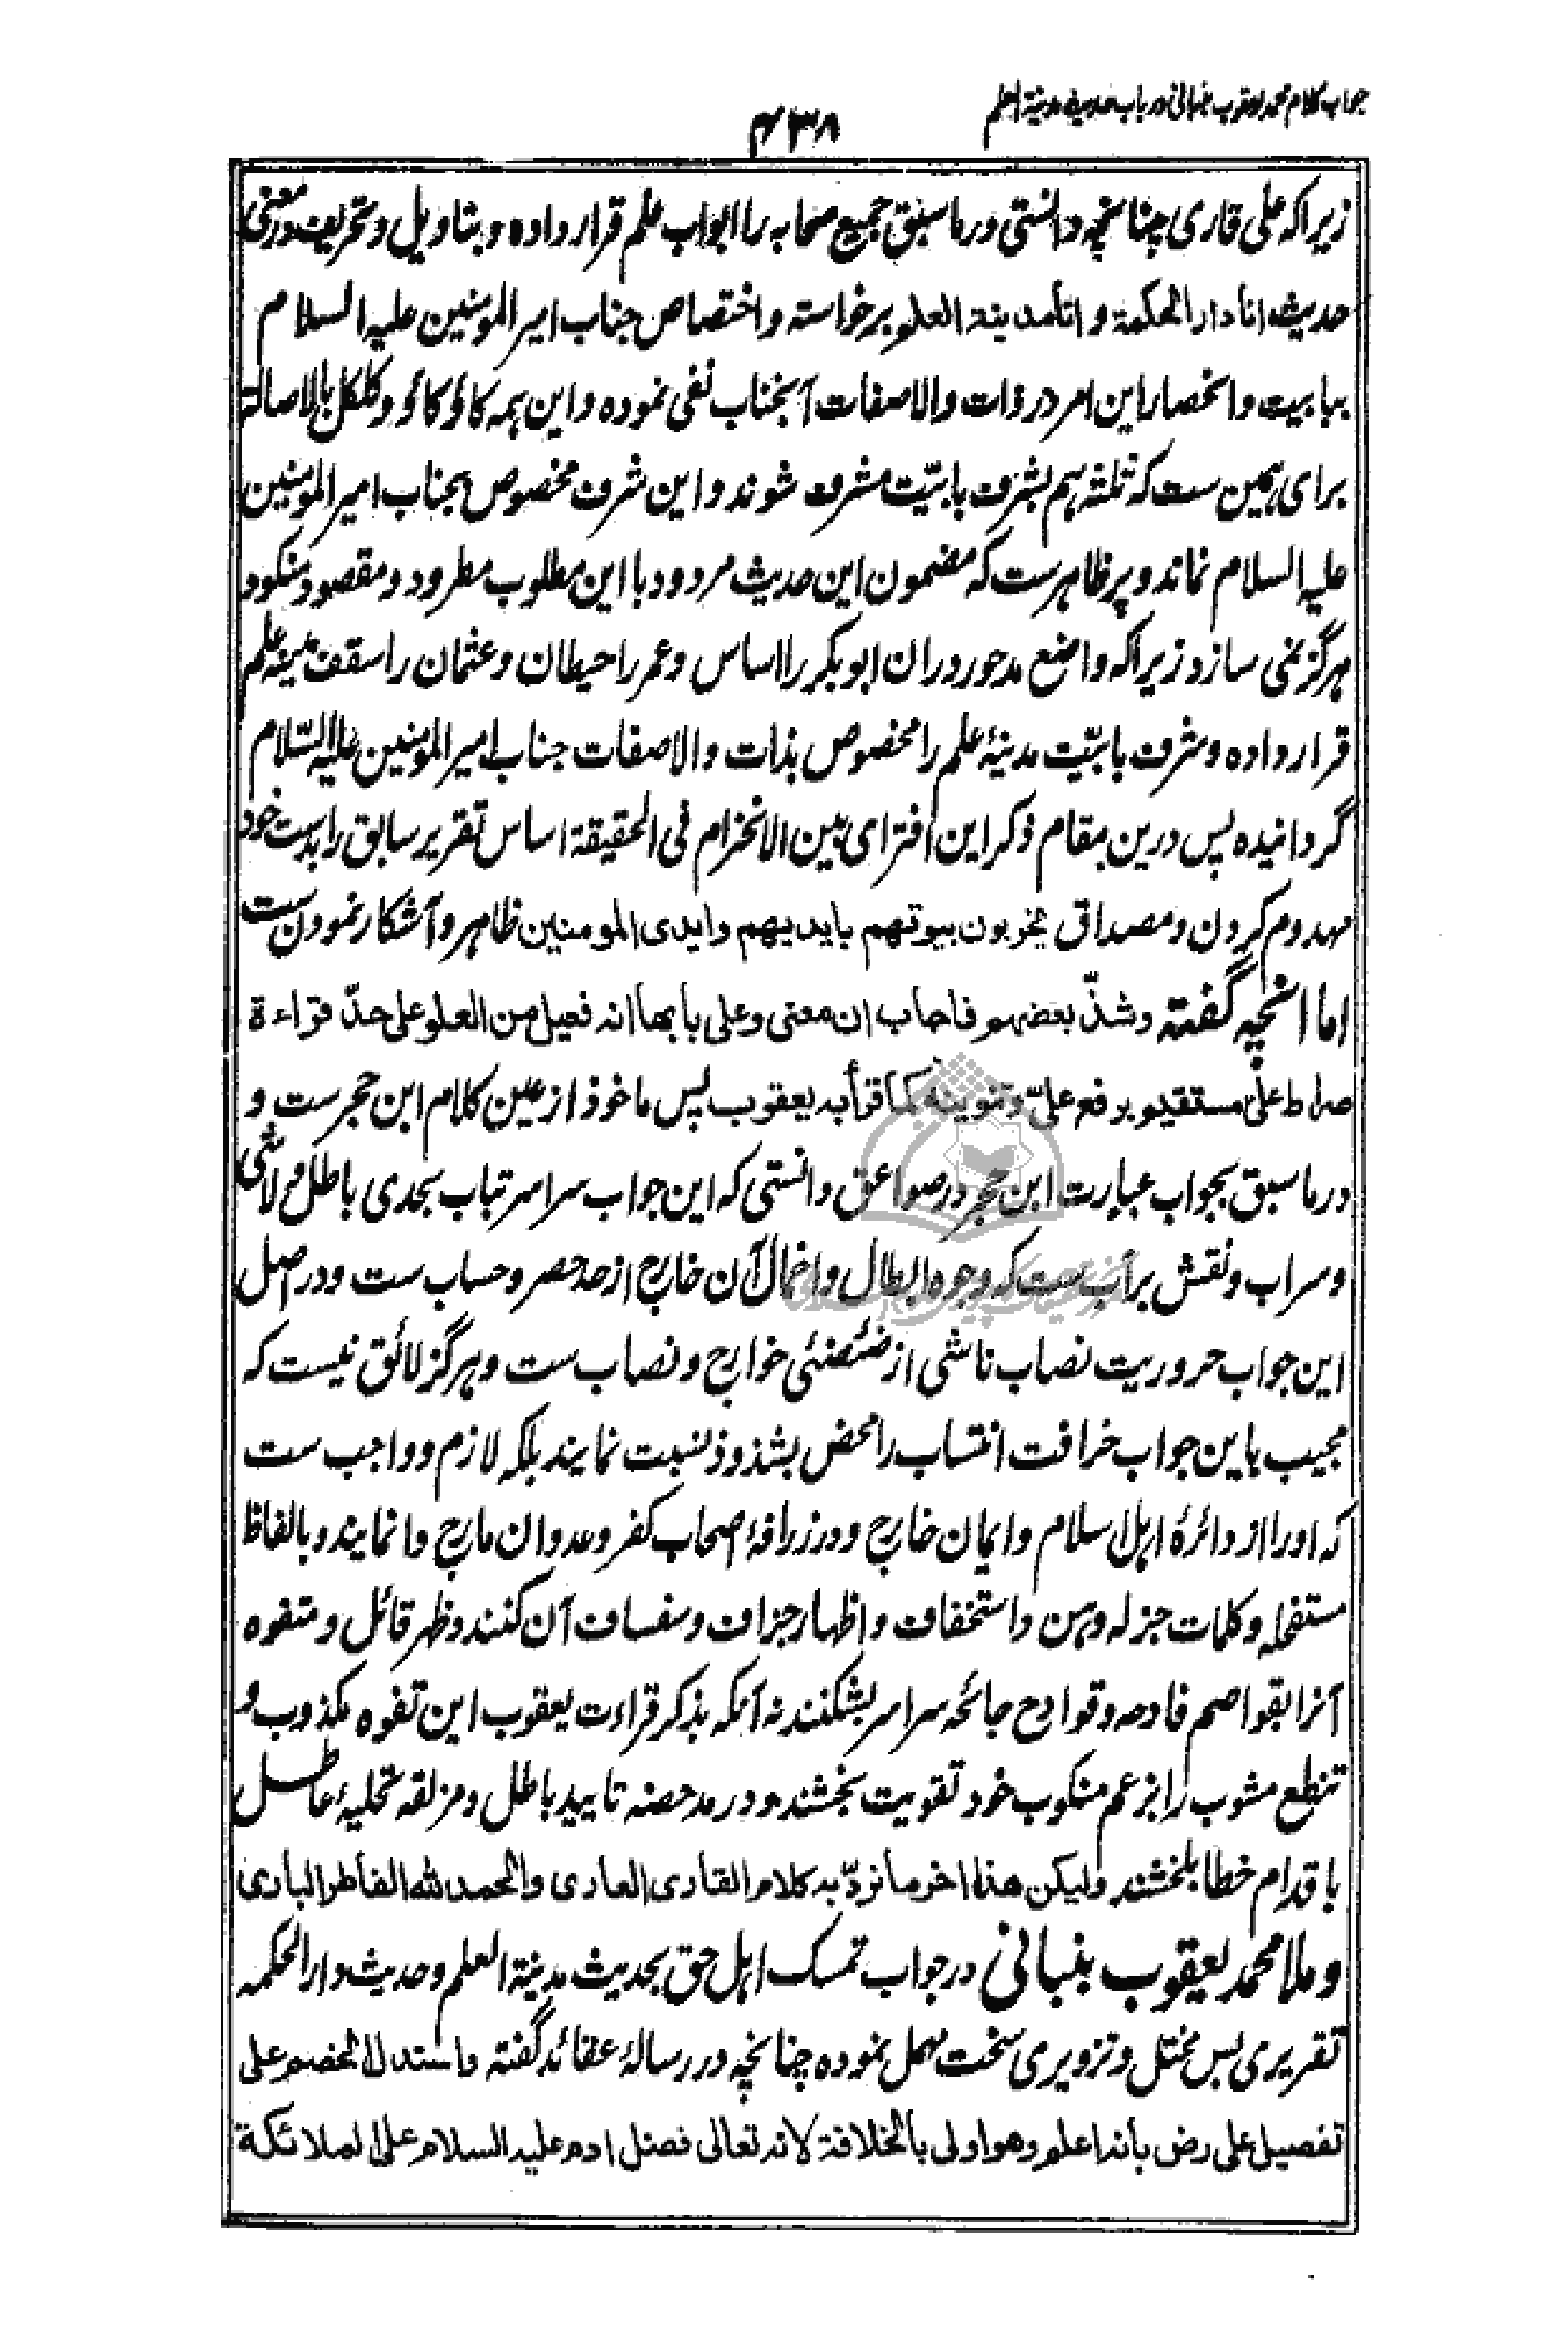 جواب کلام محمد یعقوب بنبانی در باب حدیث مدینة العلم
۴۳۸
زیراکه علی قاری چنانچه دانستی در ما سبق جمیع صحابه را ابواب علم قرار داده و بتاویل و تحریف در معنی
حدیث انا دار الحکمة و انا مدینة العلم برخواسته و اختصاص جناب امیر المومنین علیه السلام
ببابیت و انحصار این امر در ذات والاصفات آنجناب نفی نموده و این همه کاؤکاؤ و کلکل بالاصالة
برای همین ست که ثلثه هم بشرف بابیّت مشرف شوند و این شرف مخصوص بجناب امیر المومنین
علیه السلام نماند و پر ظاهرست که مضمون این حدیث مردود با این مطلوب مطرود و مقصود منکود
هرگز نمی سازد زیراکه واضع مدحور دران ابو بکر را اساس و عمر را حیطان و عثمان را سقف مدینه علم
قرار داده و شرف بابیّت مدینهٔ علم را مخصوص بذات والاصفات جناب امیر المومنین علیه السّلام
گردانیده پس درین مقام ذکر این افترای بین الانخرام فی الحقیقة اساس تقریر سابق را بدست خود
مهدوم کردن و مصداق یخربون بیوتهم بایدیهم وایدی المومنین ظاهر و آشکار نمودن ست
اما آنچه گفته وشذّ بعضهم فاجاب ان معنی وعلی بابها انه فعیل من العلو علی حدّ قراءة
صراط علیّ مستقیم برفع علیّ وتنوینه کما قرأ به یعقوب پس ماخوذ از عین کلام ابن حجرست و
در ما سبق بجواب عبارت ابن حجر در صواعق دانستی که این جواب سراسر تباب بجدی باطل و لاشی
و سراب و نقش بر آب ست که وجوه ابطال و اخمال آن خارج از حد حصر و حساب ست و در اصل
این جواب حروریت نصاب ناشی از ضئضئی خوارج و نصاب ست و هرگز لائق نیست که
مجیب باین جواب خرافت انتساب را محض بشذوذ نسبت نمایند بلکه لازم و واجب ست
که او را از دائرهٔ اهل اسلام و ایمان خارج و در زرافهٔ اصحاب کفر و عدوان مارج وا نمایند و بالفاظ
مستفحله و کلمات جزله وهن و استخفاف و اظهار جزاف و سفساف آن کنند و ظهر قائل و متفوه
آنرا بقواصم فادحه و قوادح جائحه سراسر بشکنند نه آنکه بذکر قراءت یعقوب این تفوه مکذوب و
تنطع مشوب را بزعم منکوب خود تقویت بخشند و در مدحضه تایید باطل و مزلقه تحلیهٔ عاطل
باقدام خطا بلخشند ولیکن هذا اخر ما نردّ به کلام القاری العاری والحمد لله الفاطر الباری
و ملا محمد یعقوب بنبانی در جواب تمسک اهل حق بحدیث مدینة العلم و حدیث دار الحکمه
تقریری بس مختل و تزویری سخت مهمل نموده چنانچه در رسالهٔ عقائد گفته واستدلال الخصم علی
تفضیل علی رض بانه اعلم وهو اولی بالخلافة لانه تعالی فضل ادم علیه السلام علی الملائکة